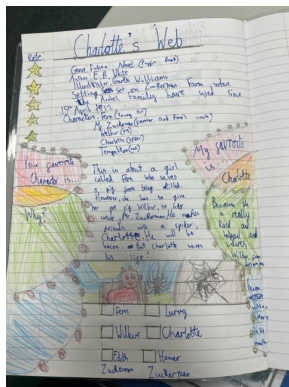 Charlotte's Web
Rate:
Genre: Fiction Novel (Chapter Book)
Author: E.B. White
Illustrator: Garth Williams
Setting: Set on Zuckerman Farm, when
the Arabel family have lived since
15th April 1952.
Characters: Fern (Young Girl)
Mr Zuckerman (Farmer and Fern's uncle)
Wilbur (Pig)
Charlotte (Spider)
Templeton (rat)
Your favorite
Character is:
Why?
This is about a girl
called Fern who saves
a pig from being killed.
However, she has to give
her pet pig Wilbur, to her
uncle Mr. Zuckerman. He makes
friends with a spider,
Charlotte. He will be
bacon, but charlotte saves
his life!
My favorite
is:
Charlotte
Because she
is really
kind and
helpful and
saves
Wilbur from
Fern
Lurvy
Wilbur
Charlotte
Edith
Homer
Zuckerman
Zuckerman